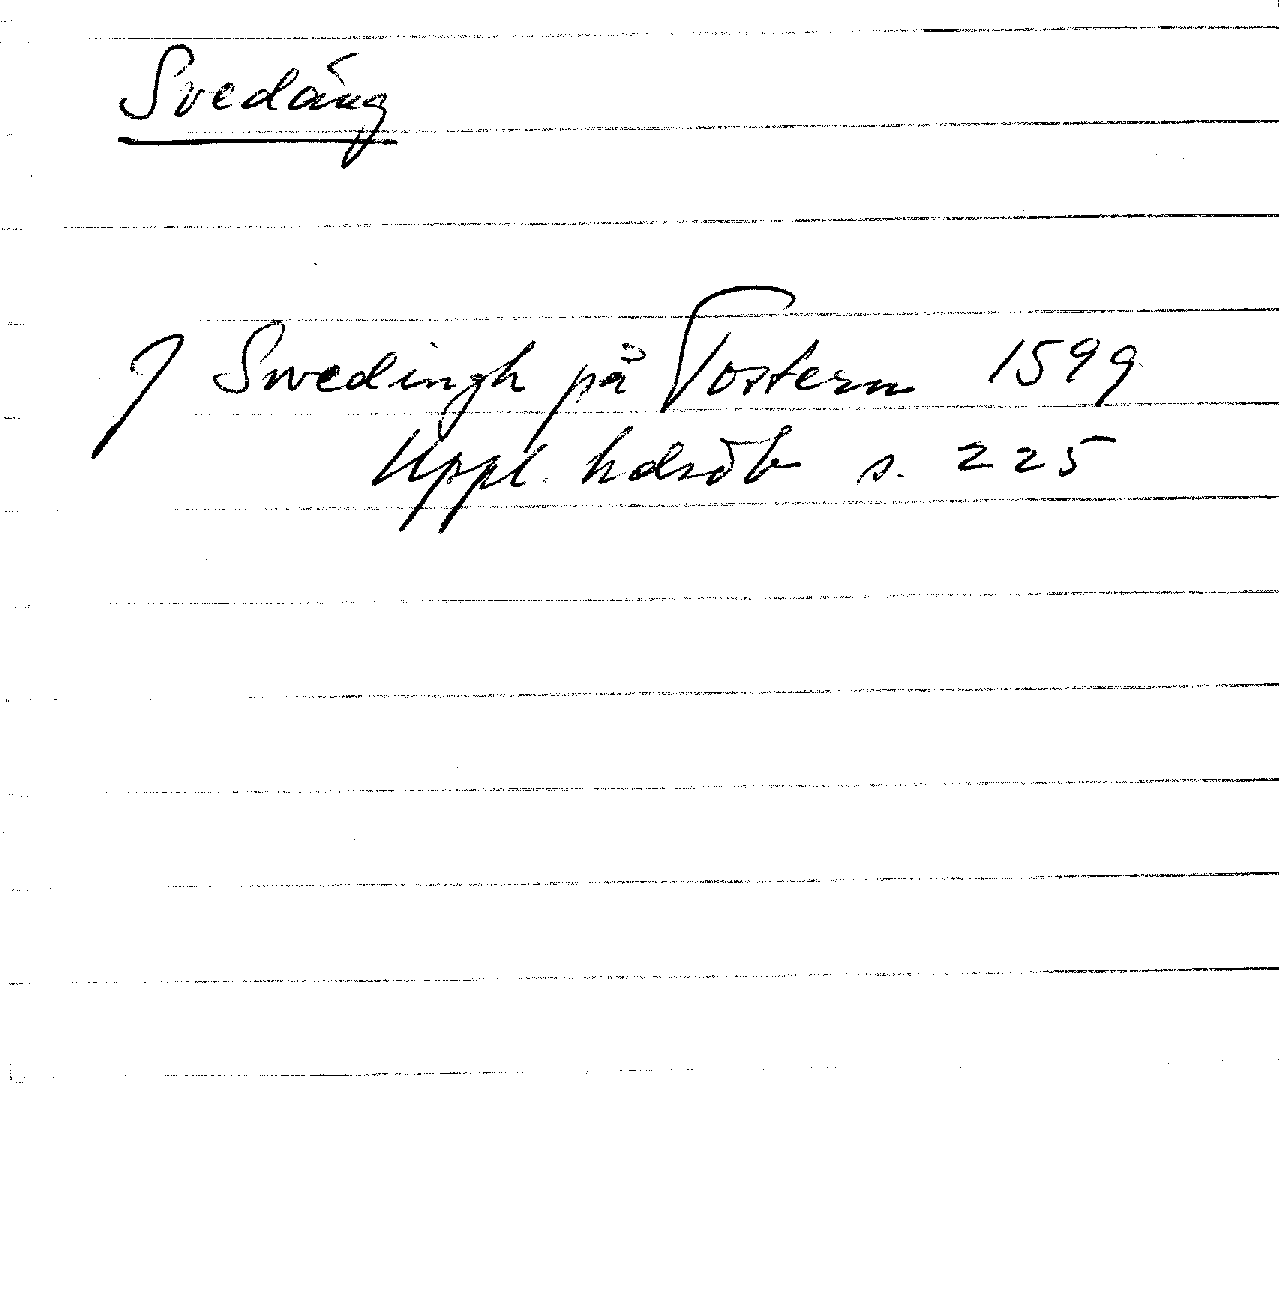 Svedäng
J Swedingh på Tostern 1599
Uppl. hdsdb s. 225